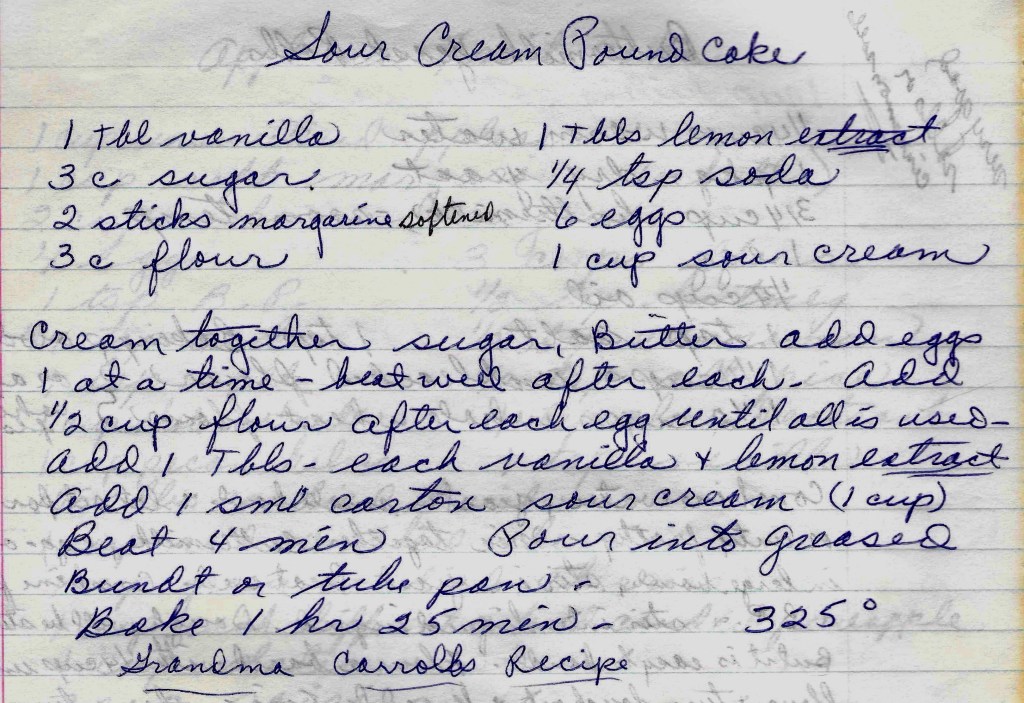 Sour Cream Pound Cake
1 Tbl vanilla 1 Tbls lemon extract
3 c sugar. 1/4 tsp soda
2 sticks margarine softened 6 eggs
3 c flour 1 cup sour cream
Cream together sugar, Butter add eggs
1 at a time - beat well after each - Add
1/2 cup flour after each egg until all is used -
add 1 Tbls - each vanilla + lemon extract
Add 1 sml carton sour cream (1 cup)
Beat 4 min Pour into greased
Bundt or tube pan -
Bake 1 hr 25 min - 325°
Grandma Carrolls Recipe